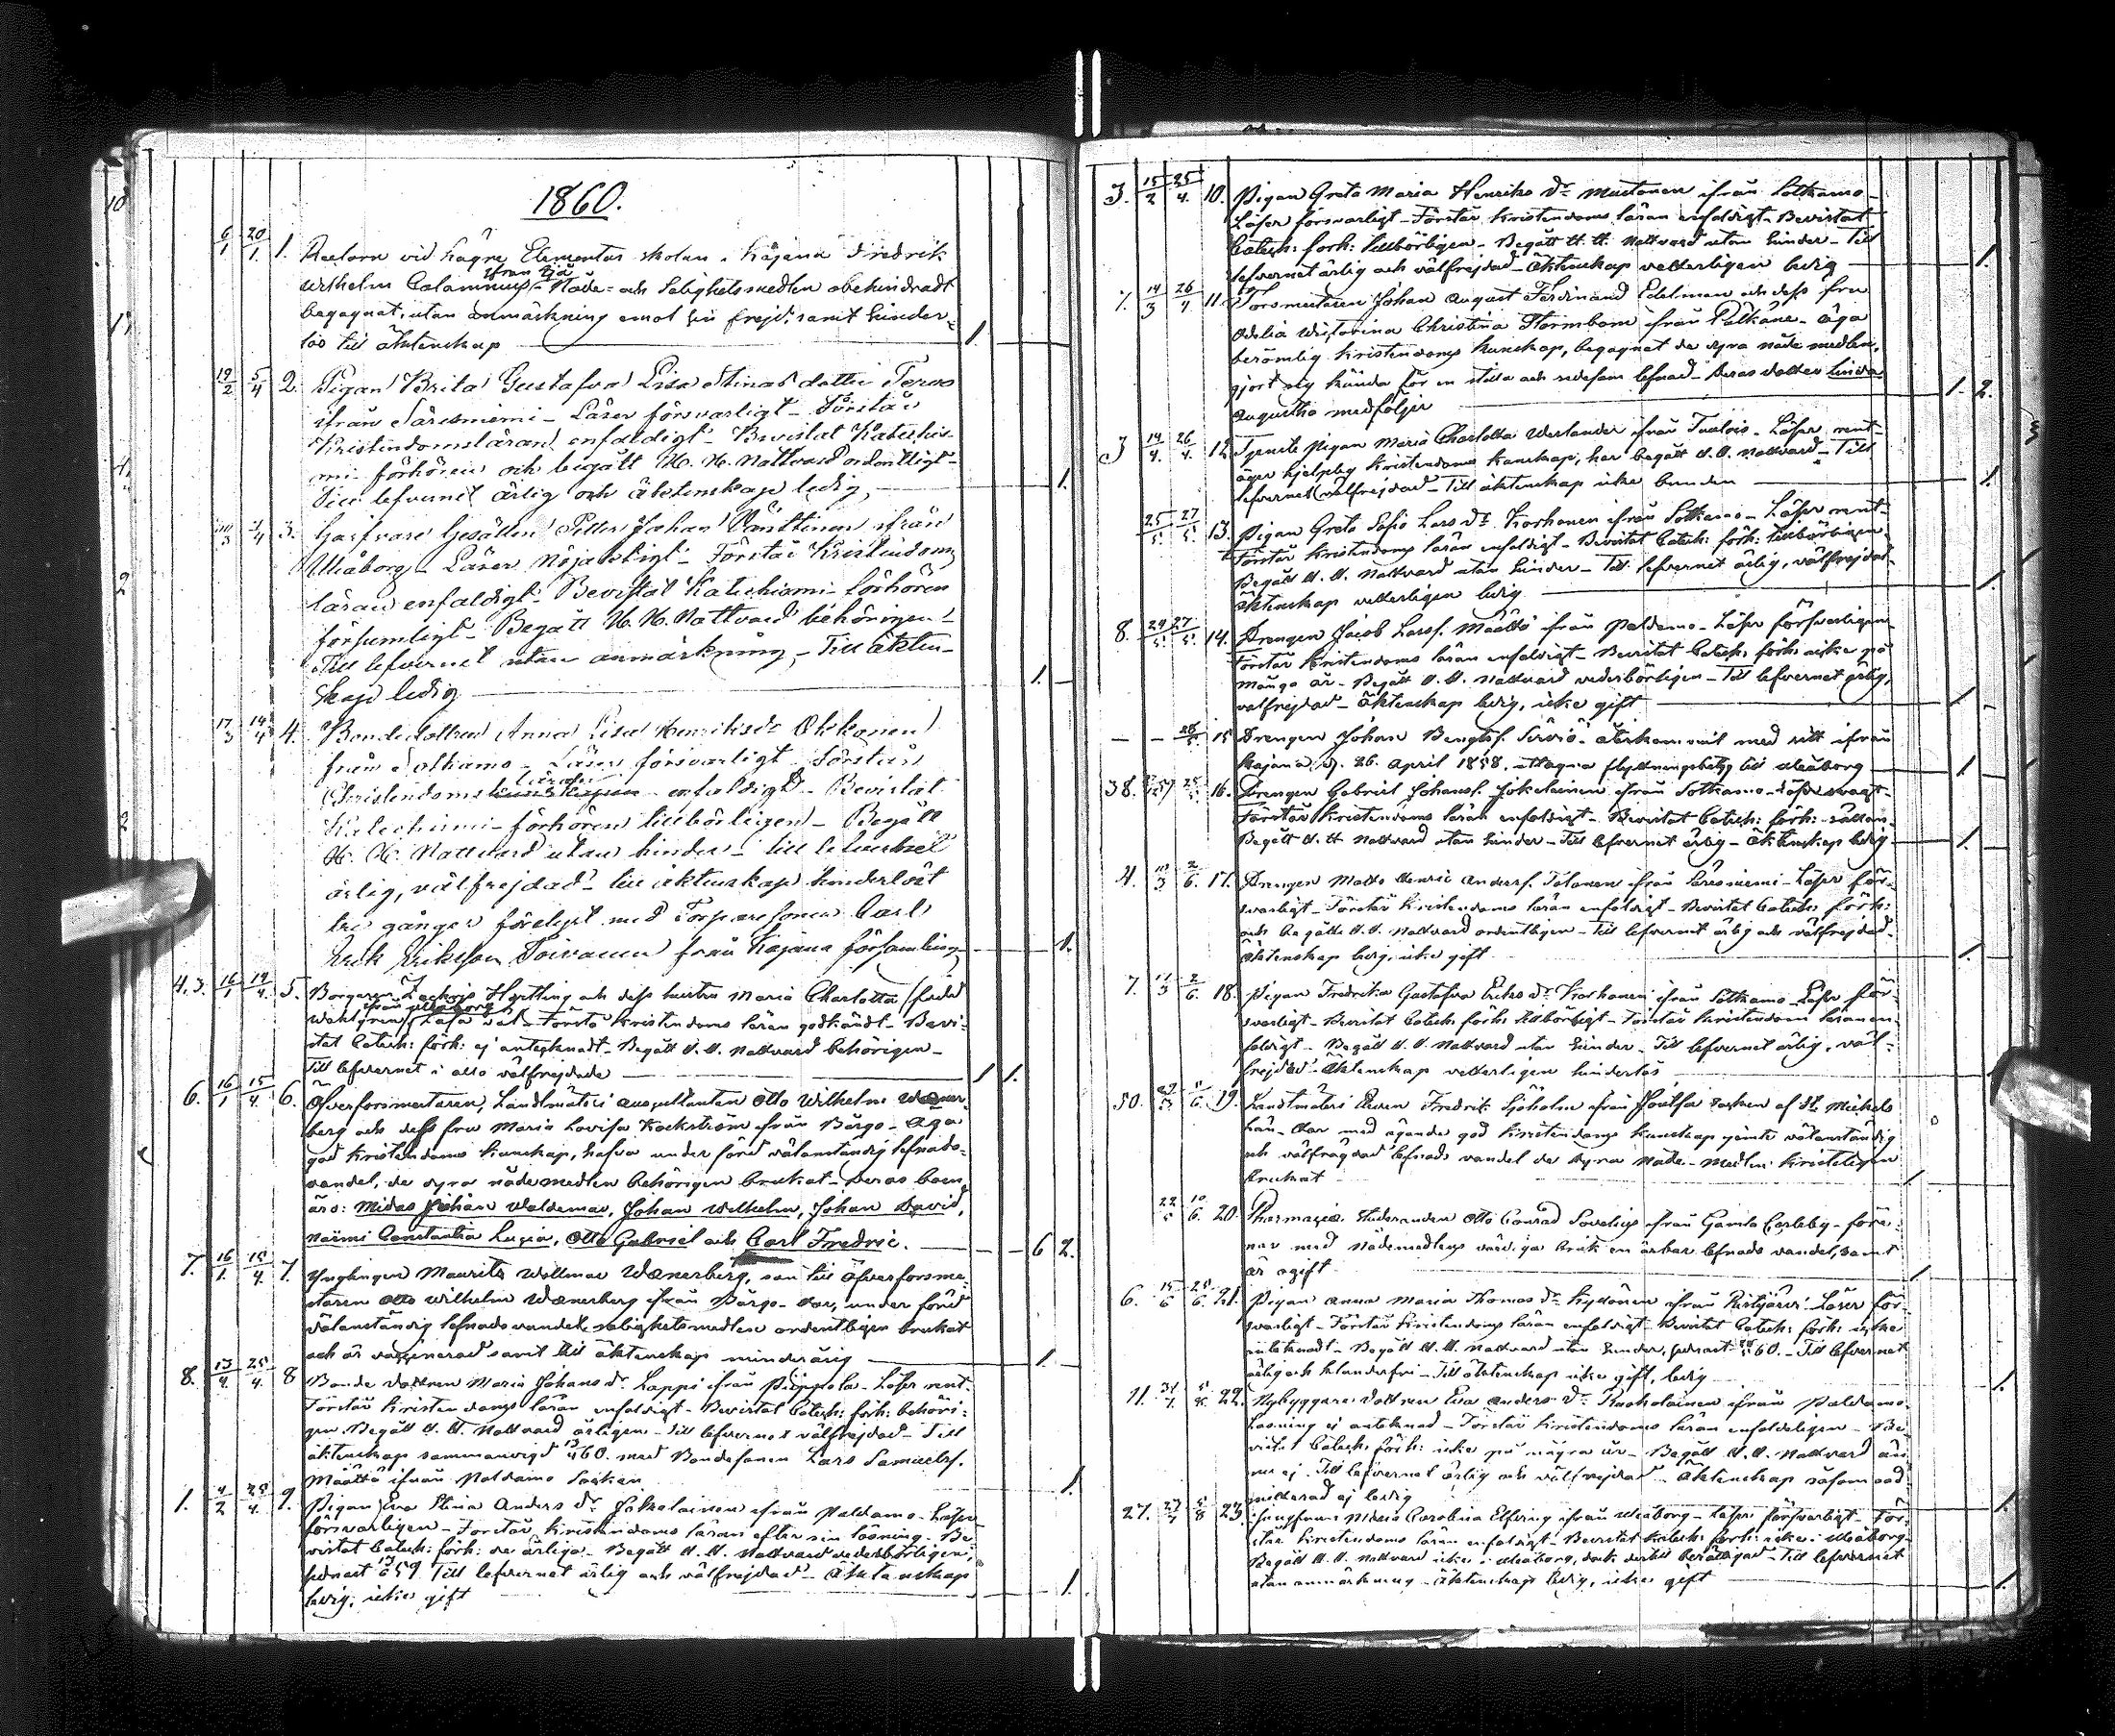 1860.
6/1 20/1 1. Rectorn vid högre Elementar skolan i Kajana Fredrik
Wilhelm Calamnius ifrån Ijå - Nåde- och Salighetsmedlen obehindradt
begagnat, utan anmärkning emot sin frejd, samt hinder-
lös till äktenskap 1
19/2 5/4 2. Pigan Brita Gustafva Lisa Stinas dotter Tervo
ifrån Säresniemi - Läser försvarligt - Förstår
Kristendomsläran enfaldigt - Bevistat Katechis-
mi förhören och begått H. H. Nattvard ordentligt -
Till lefvernet ärlig och äktenskap ledig, 1.
3. Garfvare Gesällen Petter Johan ifrån
Uleåborg - Läser Nöjaktligt - Förstår Kristendoms
läran enfaldigt - Bevistat Katechismi förhören
försumligt - Begått H. H. Nattvard behörigen -
Till lefvernet utan anmärkning - Till äkten-
skap ledig 1.
17/3 14/4 4. Bondedottren Anna Lisa Henriksdr Okkonen
från Sotkamo - Läser försvarligt - Förstår
Christendoms läran enfaldigt - Bevistat
Katechismi förhören tillbörligen - Begått
H. H. Nattvard utan hinder - till lefvernet
ärlig, välfrejdad - till äktenskap hinderlöst
tre gånger förelyst med Torparesonen Carl
Erik Eriksson Toivanen från Kajana församling 1.
43. 16/1 14/4. 5. Borgaren Zachris Hertling och dess hustru Maria Charlotta (född
Wahlgren) ifrån Uleåborg Läsa väl - Förstå Kristendoms läran godkändt - Bevi-
stat Catech: förh: ej antecknadt - Begått H. H. Nattvard behörigen -
Till lefvernet i allo välfrejdade 1 1.
6. 16/1 15/4. 6. Öfverforstmästaren, Landtmäteri auscultanten Otto Wilhelm Wæner-
berg och dess fru Maria Lovisa Kockström ifrån Borgo - Äga
god Kristendoms kunskap, hafva under förd välanständig lefnads-
vandel, de dyra nådemedlen behörigen brukat - Deras barn
äro: Midas Johan Waldemar, Johan Wilhelm, Johan David,
Naëmi Constantia Lucia, Otto Gabriel och Carl Fredric. 6 2.
7. 16/1. 15/4. 7. Ynglingen Maurits Wollmar Wænerberg, son till Öfverforstmä-
staren Otto Wilhelm Wænerberg ifrån Borgo - har, under förd
välanständig lefnads vandel, salighetsmedlen ordentligen brukat
och är vaccinerad samt till äktenskap minderårig 1.
8. 13/4. 25/4. 8 Bonde dottren Maria Johans dr Lappi ifrån Piippola - Läser rent.
Förstår Kristendoms läran enfaldigt - Bevistat Catech: förh: behöri-
gen. Begått H. H. Nattvard årligen - Till lefvernet välfrejdad - Till
äktenskap sammanvigd 60. med Bondesonen Lars Samuelss.
Määttä ifrån Paldamo Socken 1.
1. 4/2 25/4. 9. Pigan Eva Stina Anders dr Jokelainen ifrån Paldamo - Läser
försvarligen - Förstår Kristendoms läran efter sin läsning - Be-
vistat Catech: förh: de årliga - Begått H. H. Nattvard vederbörligen;
senast 59. Till lefvernet ärlig och välfrejdad - Äktenskap
ledig, icke gift 1.
3. 15/2 25/4. 10. Pigan Greta Maria Henriks dr Mustonen ifrån Sotkamo -
Läser försvarligt - Förstår Kristendoms läran enfaldigt - Bevistat
Catech: förh: tillbörligen - Begått H. H. Nattvard utan hinder - Till
lefvernet ärlig och välfrejdad - Äktenskap vetterligen ledig 1.
7. 14/3 26/4 11. Forstmästaren Johan August Ferdinand Edelman och dess fru
Adelia Wictorina Christina Stormbom ifrån Pälkäne - Äga
berömlig Kristendoms kunskap, begagnat de dyra nåde medlen,
gjort sig kända för en stilla och sedesam lefnad - Deras dotter Linda
Augusta medföljer 1. 2.
3 14/4. 26/4. 12 Tjenste pigan Maria Charlotta Werlander ifrån Tuulois - Läser rent -
äger hjelplig Kristendoms kunskap, har begått H. H. Nattvard - Till
lefvernet välfrejdad - Till äktenskap icke bunden 1.
25/5. 27/5. 13. Pigan Greta Sofia Lars dr Korhonen ifrån Sotkamo - Läser rent -
Förstår Kristendoms läran enfaldigt - Bevistat Catech: förh: tillbörligen -
Begått H. H. Nattvard utan hinder - Till lefvernet ärlig, välfrejdad -
Äktenskap vetterligen ledig 1.
8. 24/5. 27/5. 14. Drengen Jacob Larss. Määttä ifrån Paldamo - Läser försvarligen -
Förstår Kristendoms läran enfaldigt - Bevistat Catech: förh: icke på
många år - Begått H. H. Nattvard vederbörligen - Till lefvernet ärlig,
välfrejdad - Äktenskap ledig, icke gift 1.
15 Drengen Johan Bengtss. Servio - återkommit med sitt ifrån
Kajana d. 26. April 1858. uttagna flyttningsbetyg till Uleåborg 1.
38. 16. Drengen Gabriel Johanss. Jokelainen ifrån Sotkamo - Läser svagt -
Förstår Kristendoms läran enfaldigt - Bevistat Catech: förh: sällan -
Begått H. H. Nattvard utan hinder - Till lefvernet ärlig - Äktenskap ledig 1.
4. 2/6. 17. Drengen Matts Henric Anderss. Tolonen ifrån Säresniemi - Läser för-
svarligt - Förstår Kristendoms läran enfaldigt - Bevistat Catech: förh:
och begått H. H. Nattvard ordentligen - Till lefvernet ärlig och välfrejdad -
Äktenskap ledig, icke gift 1.
7. 2/6. 18. Pigan Fredrika Gustafva Eriks dr Korhonen ifrån Sotkamo - Läser för-
svarligt - Bevistat Catech: förh: tillbörligt - Förstår Kristendoms läran en-
faldigt - Begått H. H. Nattvard utan hinder - Till lefvernet ärlig, väl-
frejdad - Äktenskap vetterligen hinderlös 1.
50. 19. Landtmäteri Eleven Fredrik Sjöholm ifrån Joutsa socken af St. Michels
Län - Har med ägande god Kristendoms kunskap jemte välanständig
och välfrägdad lefnads vandel de dyra Nåde-medlen Kristeligen
brukat 1
22/5 10/6. 20. Pharmacie Studeranden Otto Conrad Sovelius ifrån Gamla Carleby - före-
nar med Nådemedlens värdiga bruk en ärbar lefnads vandel, samt
är ogift 1
6. 15/6 25/6. 21. Pigan Anna Maria Thomas dr Kyllönen ifrån Ristijärvi - Läser för-
svarligt - Förstår Kristendoms läran enfaldigt - Bevistat Catech: förh: icke
anteknadt - Begått H. H. Nattvard utan hinder, senast 60. - Till lefvernet
ärlig och klanderfri - Till äktenskap icke gift, ledig 1.
11. 22. Nybyggare dottren Eva Anders dr Karholainen ifrån Paldamo -
Läsning ej anteknad - Förstår Kristendoms läran enfaldeligen - Be-
vistat Catech: förh: icke på några år - Begått H. H. Nattvard än-
nu ej. Till lefvernet ärlig och välfrejdad - Äktenskap såsom oad-
mitterad ej ledig 1.
27. 23. Jungfrun Maria Carolina Elfving ifrån Uleåborg - Läser försvarligt - För-
står Kristendoms läran enfaldigt - Bevistat Katech: förh: icke i Uleåborg -
Begått H. H. Nattvard icke i Uleåborg, dock dertill berättigad - Till lefvernet
utan anmärkning - Äktenskap ledig, icke gift 1.